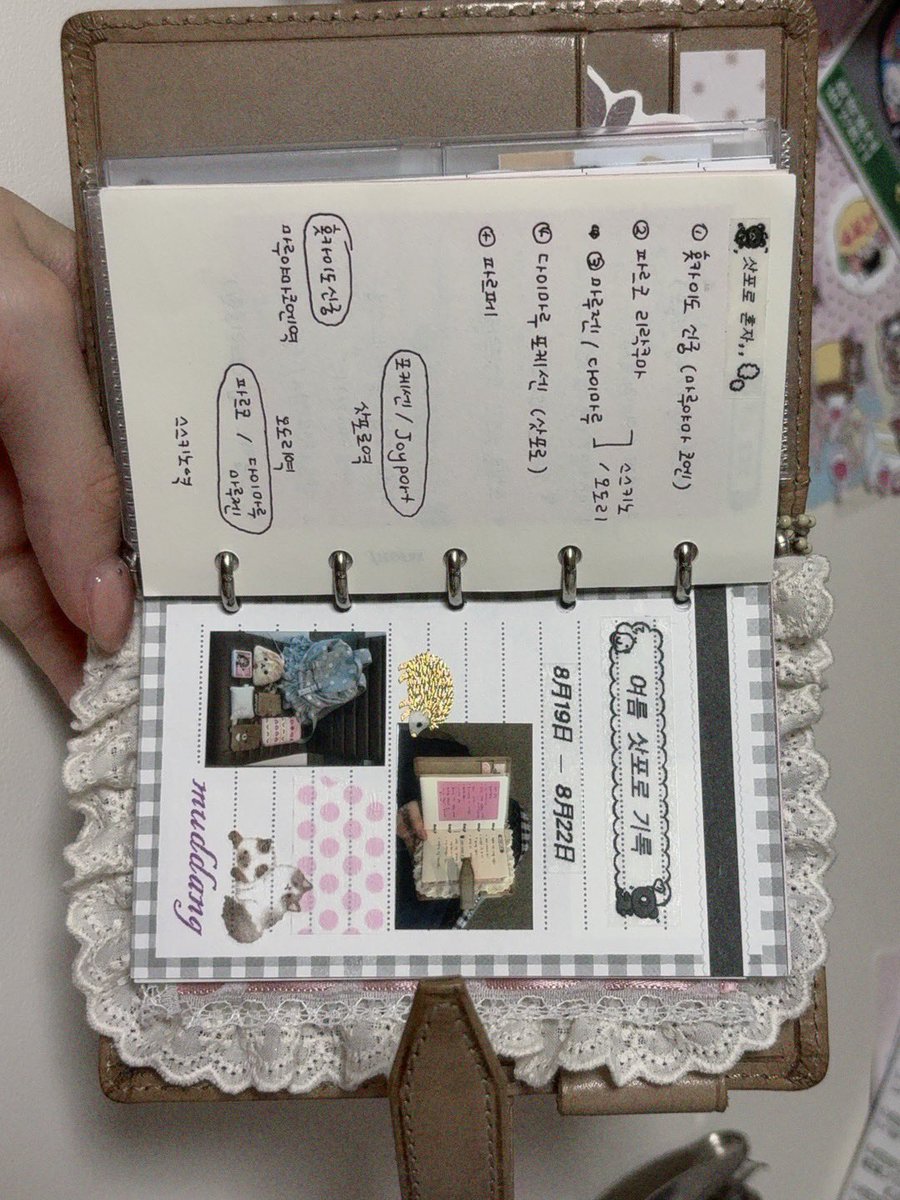 삿포로 혼자,,
① 홋카이도 신궁 (마루야마 코엔)
② 파르코 리락쿠마
⇒ ③ 마루젠 / 다이마루 ] 스스키노 / 오도리
④ 다이마루 포케센 (삿포로)
⊕ 파르페
포케센 / Joyport
삿포로역
홋카이도 신궁
마루야마코엔역
오도리역
파르코 / 다이마루
마루젠
스스키노역
여름 삿포로 기록
8月19日 — 8月22日
muddang